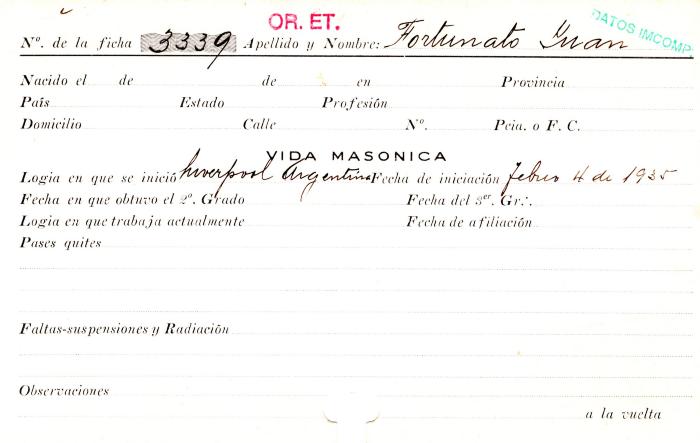 OR. ET.
DATOS IMCOMP
Nº. de la ficha 3339 Apellido y Nombre: Fortunato Juan
Nacido el de de en Provincia
País Estado Profesión
Domicilio Calle Nº. Pcia. o F. C.
VIDA MASONICA
Logia en que se inició Liverpool Argentina Fecha de iniciación febrero 4 de 1935
Fecha en que obtuvo el 2º. Grado Fecha del 3er. Gr∴
Logia en que trabaja actualmente Fecha de afiliación
Pases quites
Faltas-suspensiones y Radiación
Observaciones
a la vuelta